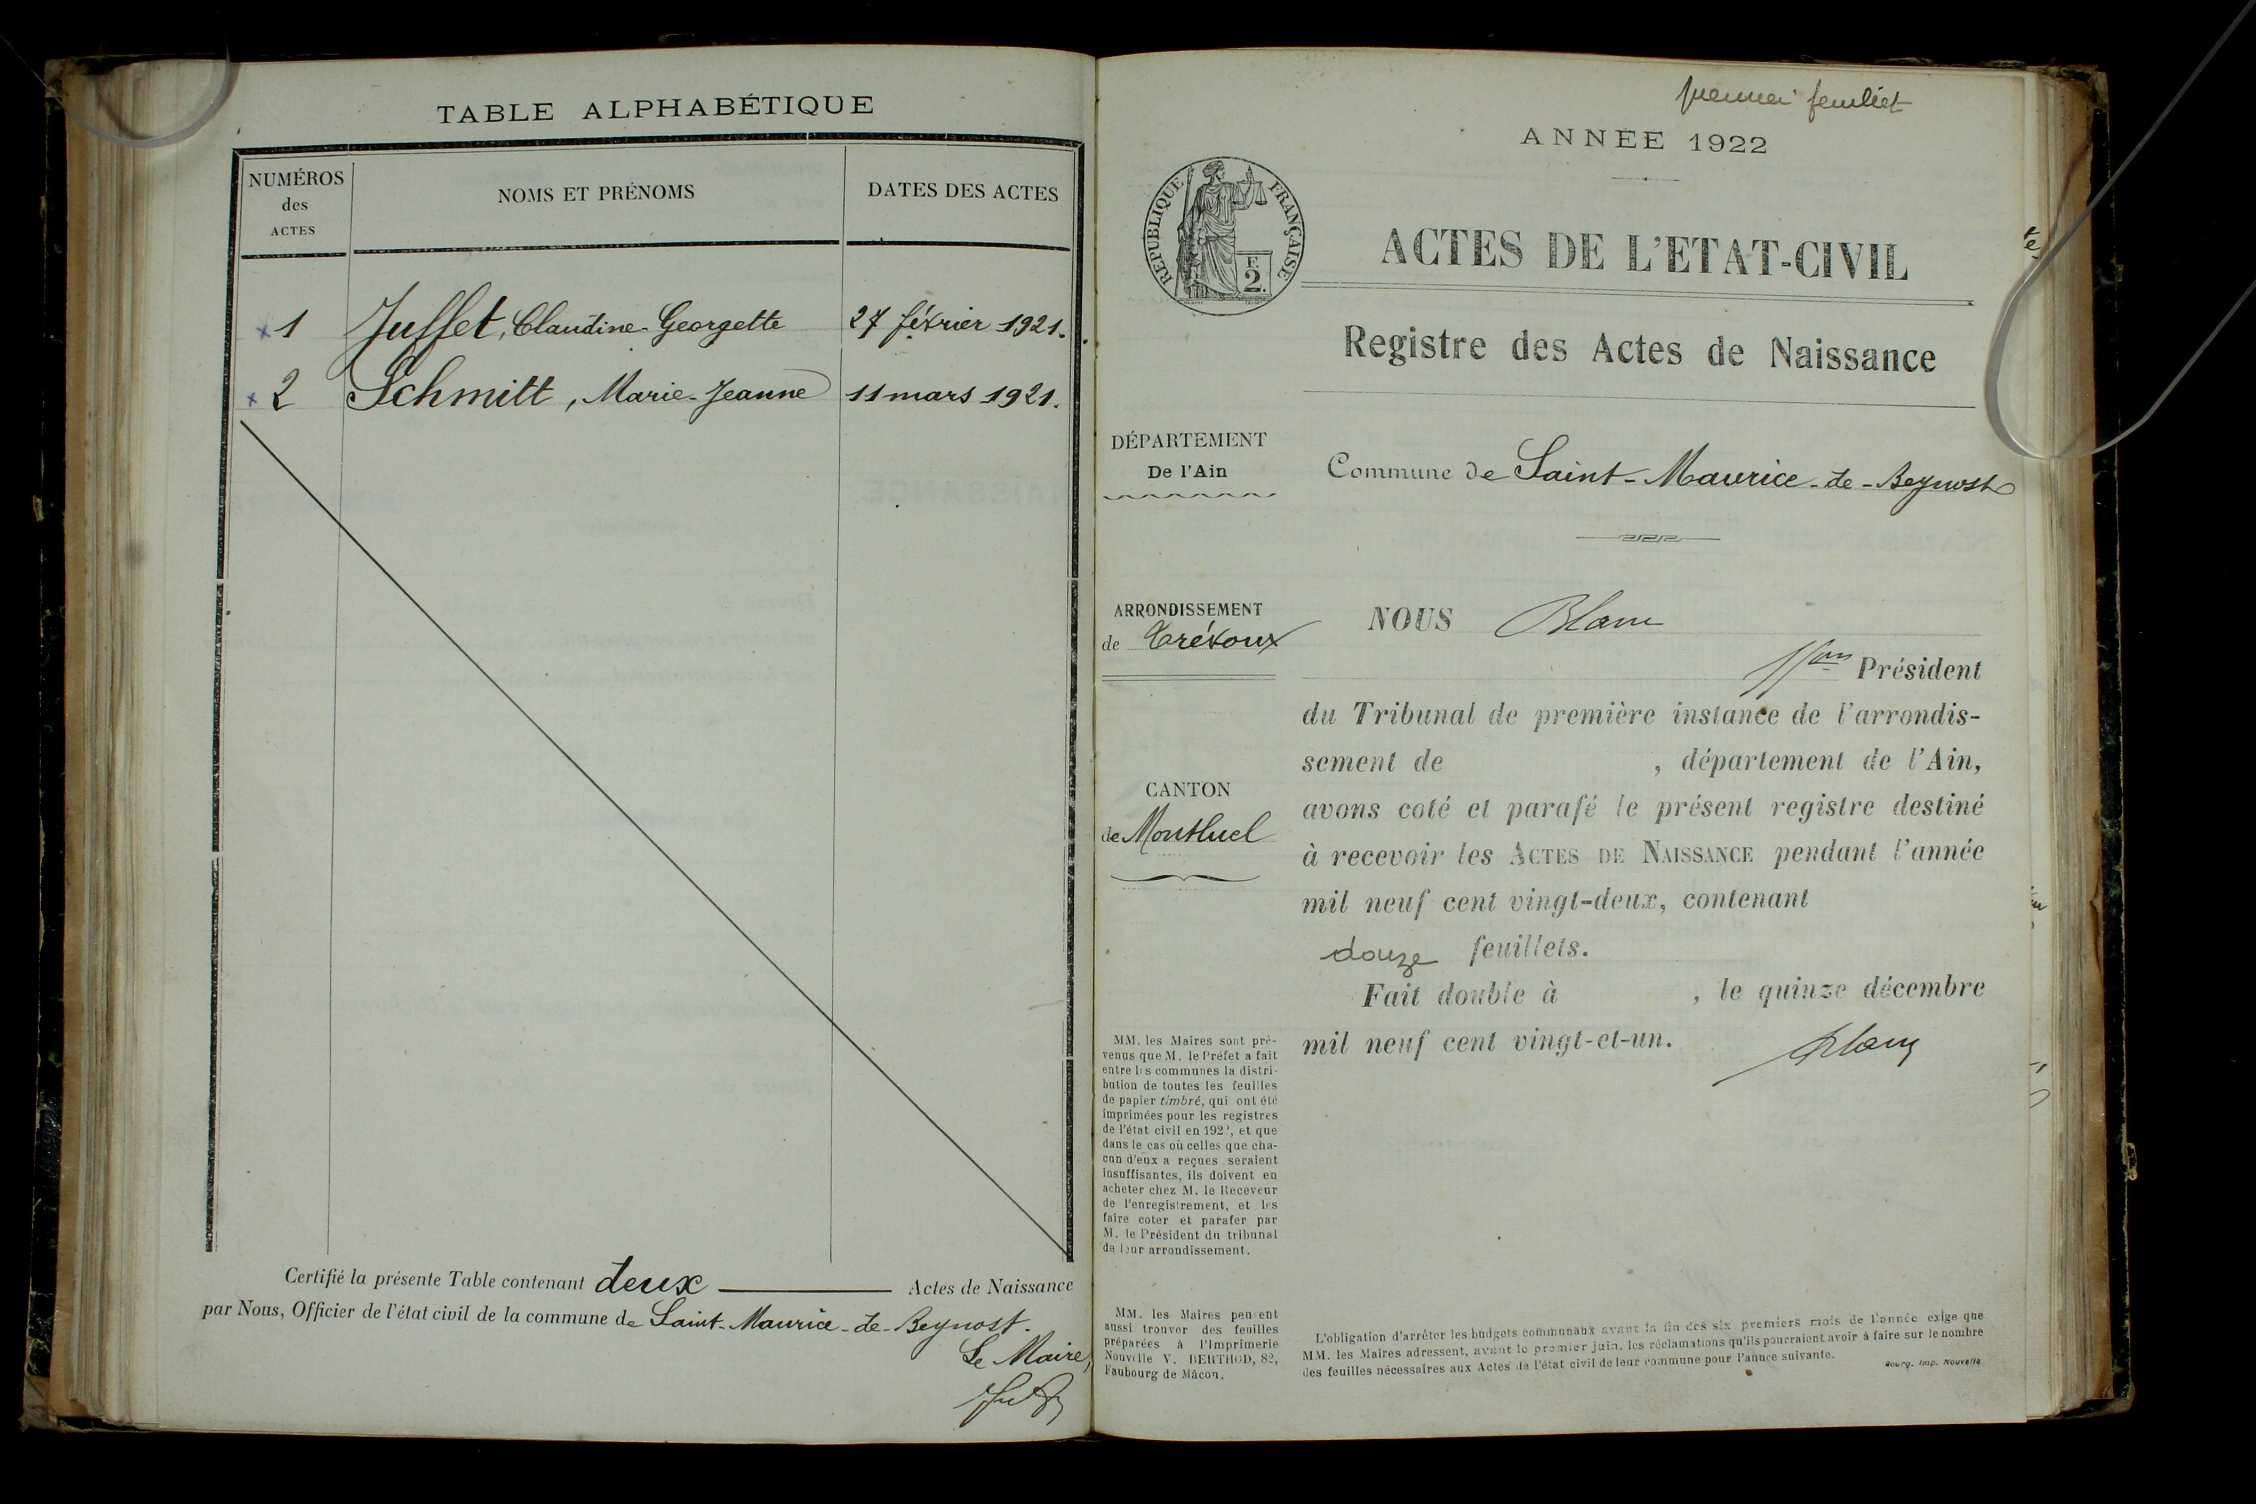 TABLE ALPHABÉTIQUE
NUMÉROS
des
ACTES
NOMS ET PRÉNOMS
DATES DES ACTES
x 1 Juffet, Claudine-Georgette 27 février 1921.
x 2 Schmitt, Marie-Jeanne 11 mars 1921.
Certifié la présente Table contenant deux Actes de Naissance
par Nous, Officier de l'état civil de la commune de Saint-Maurice-de-Beynost.
Le Maire,
premier feuillet
ANNÉE 1922
RÉPUBLIQUE FRANÇAISE
F.
2.
ACTES DE L'ETAT-CIVIL
Registre des Actes de Naissance
DÉPARTEMENT
De l'Ain
Commune de Saint-Maurice-de-Beynost
ARRONDISSEMENT
de Trévoux
CANTON
de Montluel
MM. les Maires sont pré-
venus que M. le Préfet a fait
entre les communes la distri-
bution de toutes les feuilles
de papier timbré, qui ont été
imprimées pour les registres
de l'état civil en 192, et que
dans le cas où celles que cha-
cun d'eux a reçues seraient
insuffisantes, ils doivent en
acheter chez M. le Receveur
de l'enregistrement, et les
faire coter et parafer par
M. le Président du tribunal
de leur arrondissement.
MM. les Maires peuvent
aussi trouver des feuilles
préparées à l'Imprimerie
Nouvelle V. BERTHOD, 82,
Faubourg de Mâcon.
NOUS Blanc
Président
du Tribunal de première instance de l'arrondis-
sement de , département de l'Ain,
avons coté et parafé le présent registre destiné
à recevoir les ACTES DE NAISSANCE pendant l'année
mil neuf cent vingt-deux, contenant
douze feuillets.
Fait double à , le quinze décembre
mil neuf cent vingt-et-un.
Blanc
L'obligation d'arrêter les budgets communaux avant la fin des six premiers mois de l'année exige que
MM. les Maires adressent, avant le premier juin, les réclamations qu'ils pourraient avoir à faire sur le nombre
des feuilles nécessaires aux Actes de l'état civil de leur commune pour l'année suivante.
Bourg, Imp. Nouvelle